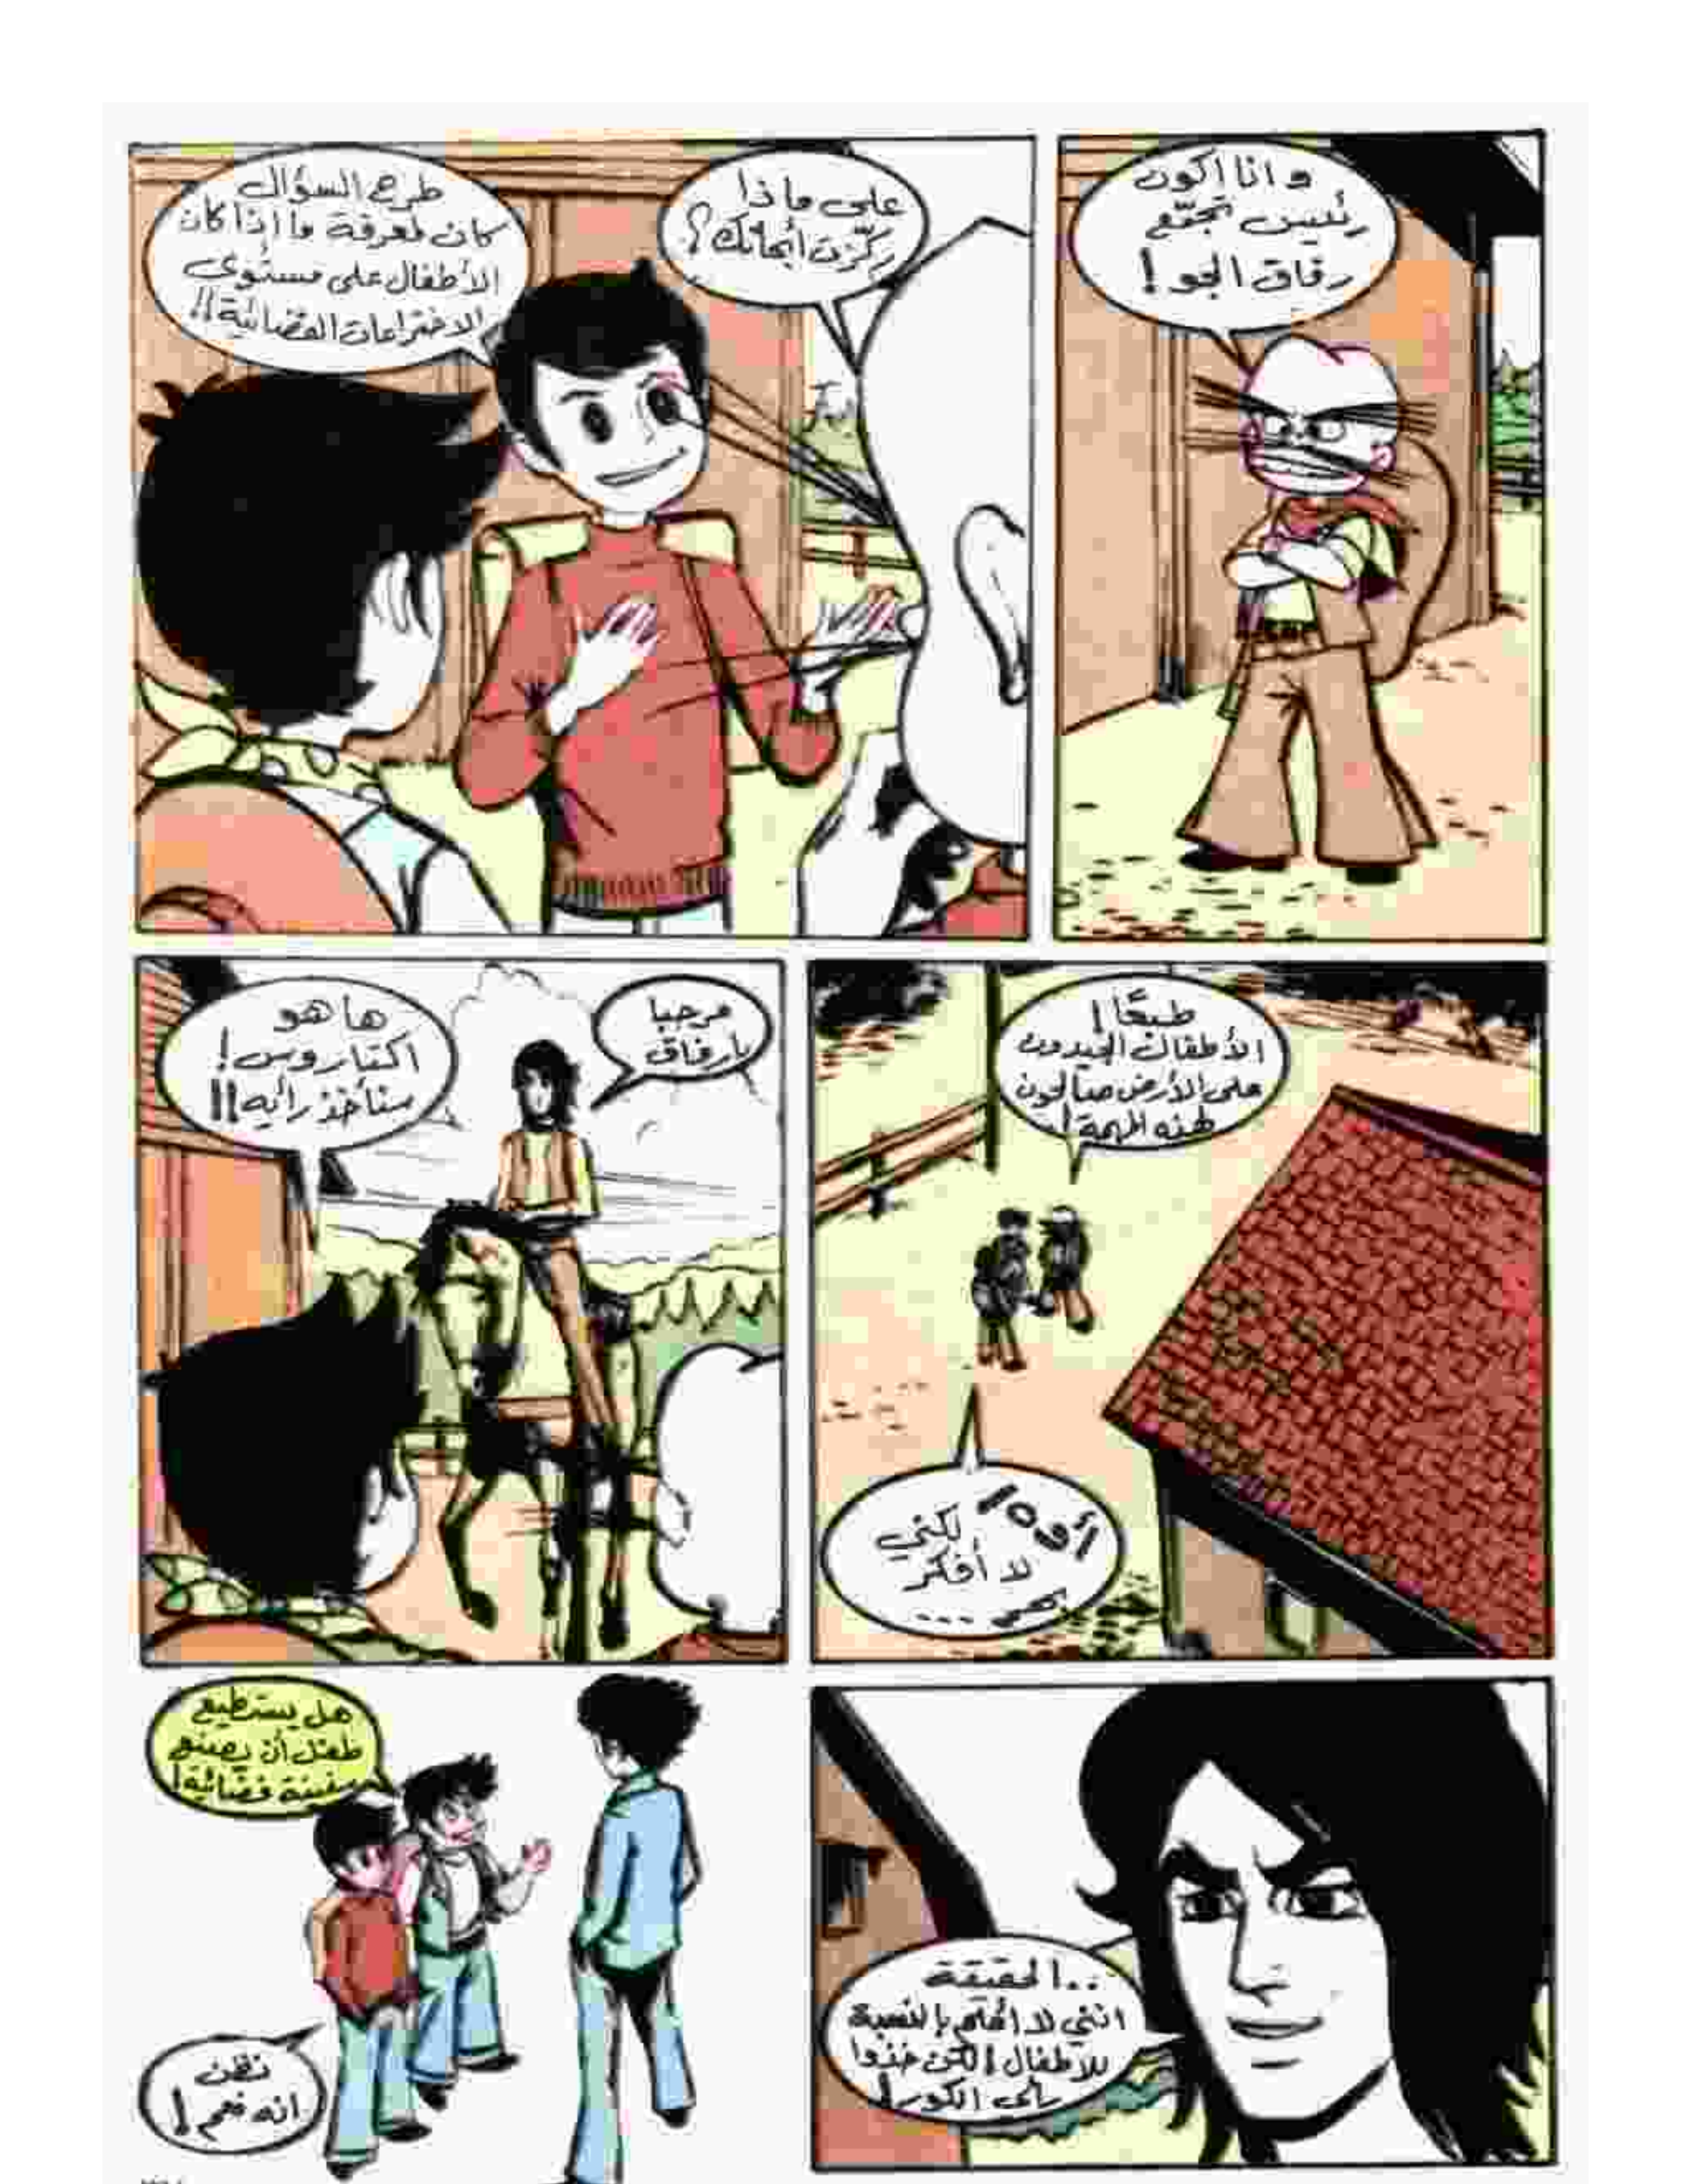 و انا اكون
رئيس تجمّع
رفاق الجو!
على ماذا
ركّزت أبحاثك؟
طرح السؤال
كان لمعرفة ما اذا كان
الأطفال على مستوى
الاختراعات الفضائية!!
طبعًا!
الأطفال الجيدون
على الأرض صالحون
لهذه المهمة!
أوه! لكني
لا أفكر
مرحبا
يا رفاق
ها هو
اكتاروس!
سنأخذ رأيه!!
..الحقيقة
انني لا أعلم بالنسبة
للاطفال! لكن خذوا
هل يستطيع
طفل أن يصنع
سفينة فضائية!
نظن
انه نعم!